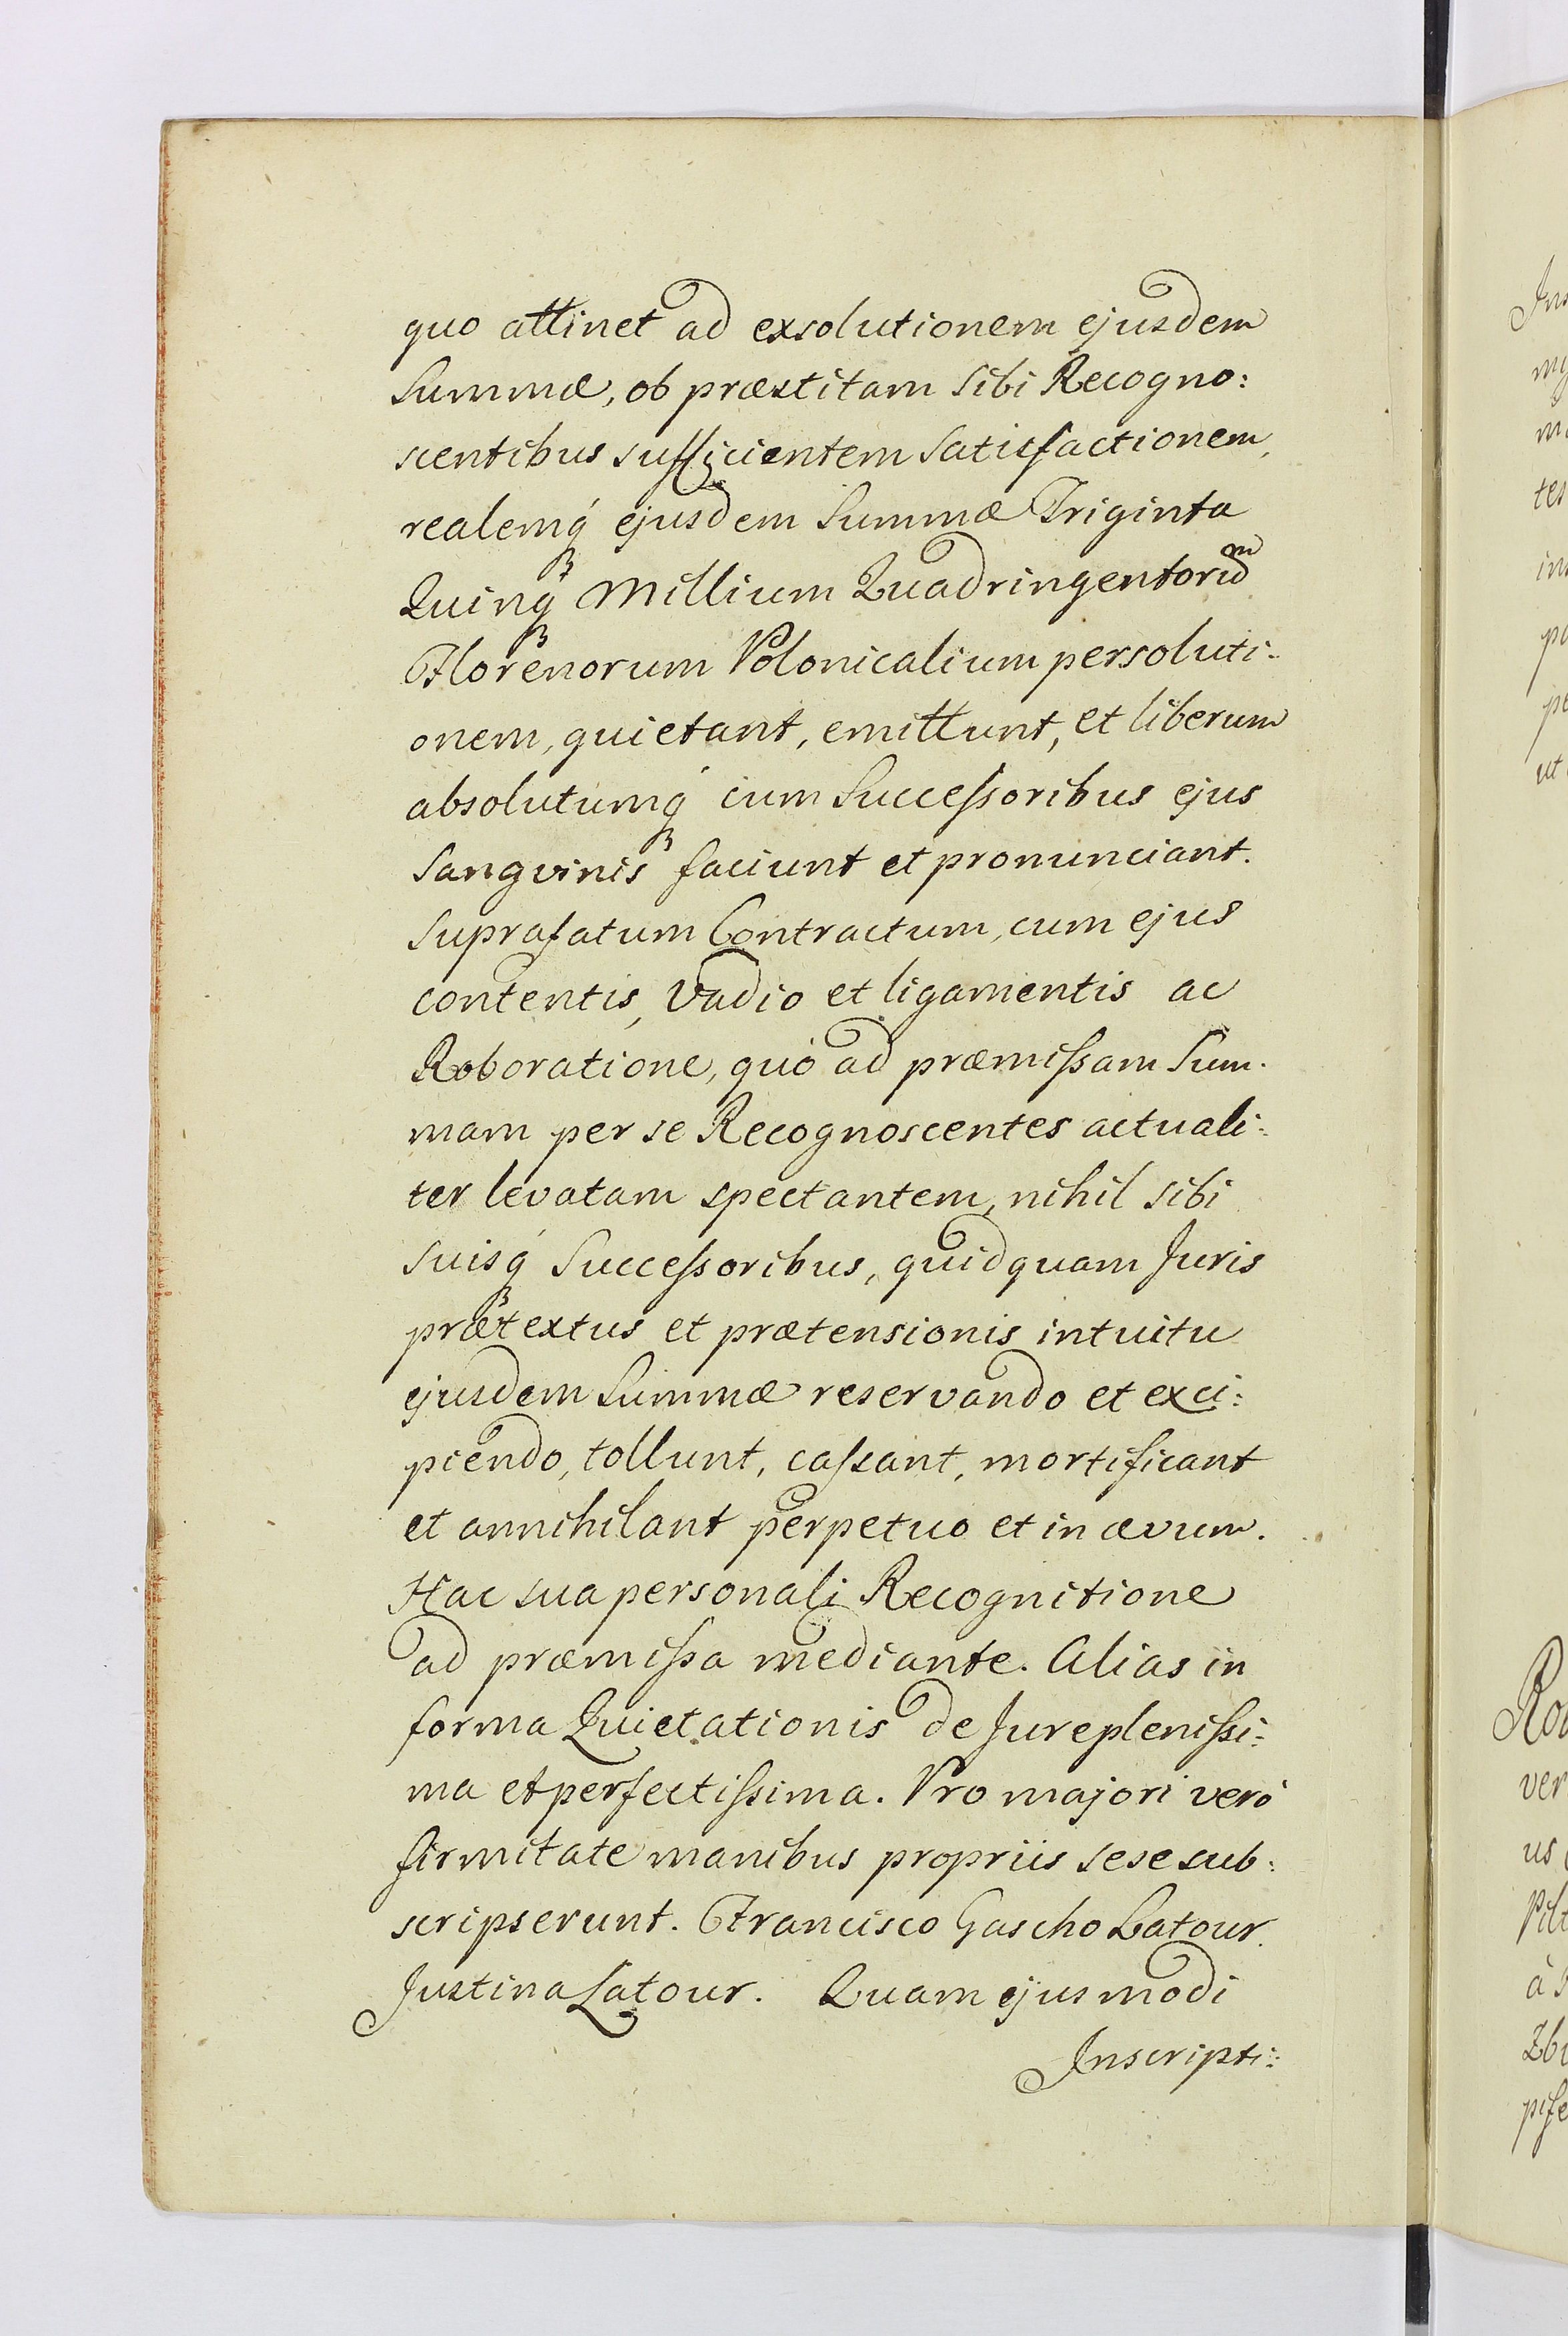 quo attinet ad exsolutionem ejusdem
Summæ, ob præstitam sibi Recogno:
scentibus sufficientem satisfactionem,
realemq́ꝫ ejusdem Summæ Triginta
Quinq́ꝫ Millium Quadringentorum
Florenorum Polonicalium persoluti:
onem, quietant, emittunt, et liberum
absolutumq́ꝫ cum Successoribus ejus
Sangvinis faciunt et pronunciant.
Suprafatum Contractum, cum ejus
contentis, Vadio et ligamentis ac
Roboratione, quò ad præmissam Sum:
mam per se Recognoscentes actuali:
ter levatam spectantem, nihil sibi
suisq́ꝫ Successoribus, quidquam Juris
prætextus et prætensionis intuitu
ejusdem Summæ reservando et exci:
piendo, tollunt, cassant, mortificant
et annihilant perpetuo et in ævum.
Hac sua personali Recognitione
ad præmissa mediante. Alias in
forma Quietationis de Jure plenissi:
ma et perfectissima. Pro majori verò
firmitate manibus propriis sese sub:
scripserunt. Francisco Gascho Latour.
Justina Latour. Quam ejusmodi
Inscripti: